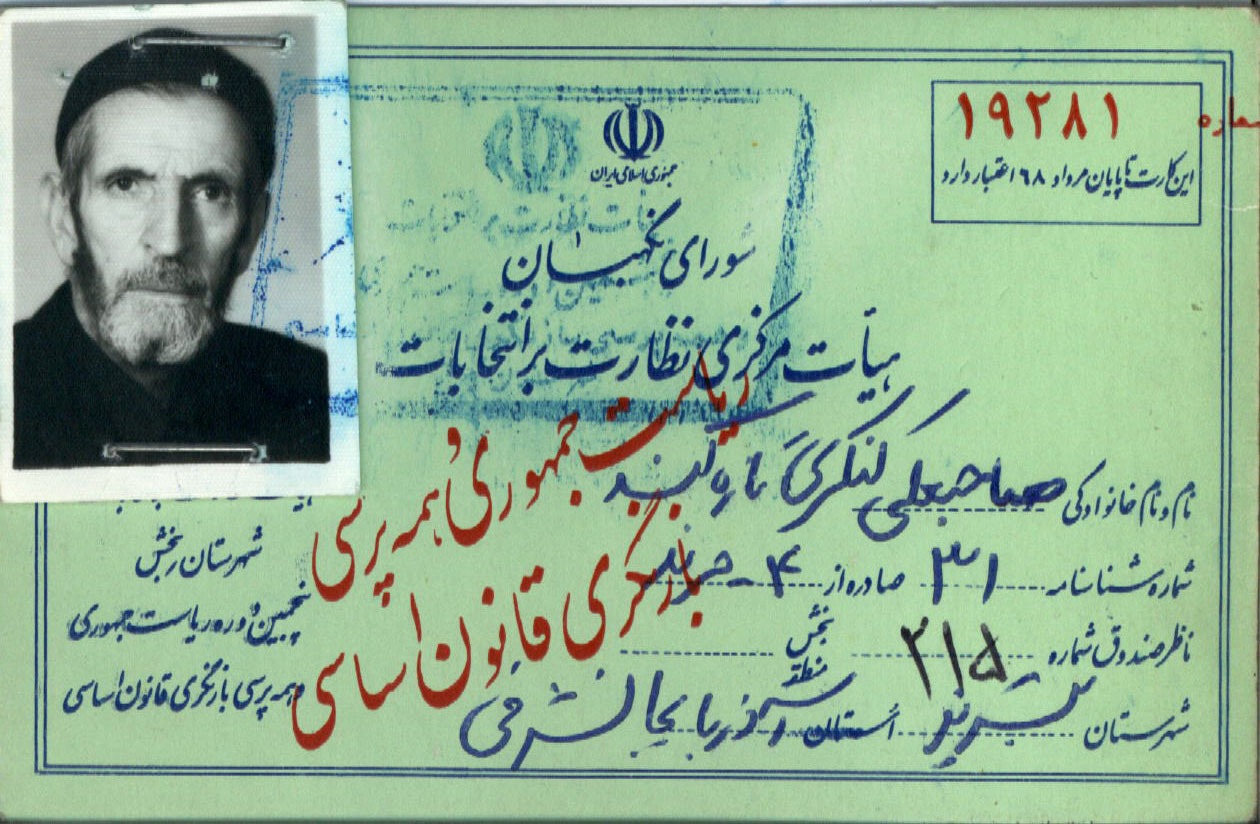 شماره ۱۹۲۸۱
این کارت تا پایان مرداد ۶۸ اعتبار دارد
جمهوری اسلامی ایران
شورای نگهبان
هیأت مرکزی نظارت بر انتخابات
ریاست جمهوری و همه پرسی
بازنگری قانون اساسی
نام و نام خانوادگی صاحبعلی لنگری
شماره شناسنامه ۳۱ صادره از ۴ -
ناظر صندوق شماره ۲۱۵ بخش منطقه
شهرستان تبریز استان آذربایجانشرقی
شهرستان بخش
پنجمین دوره ریاست جمهوری
همه پرسی بازنگری قانون اساسی